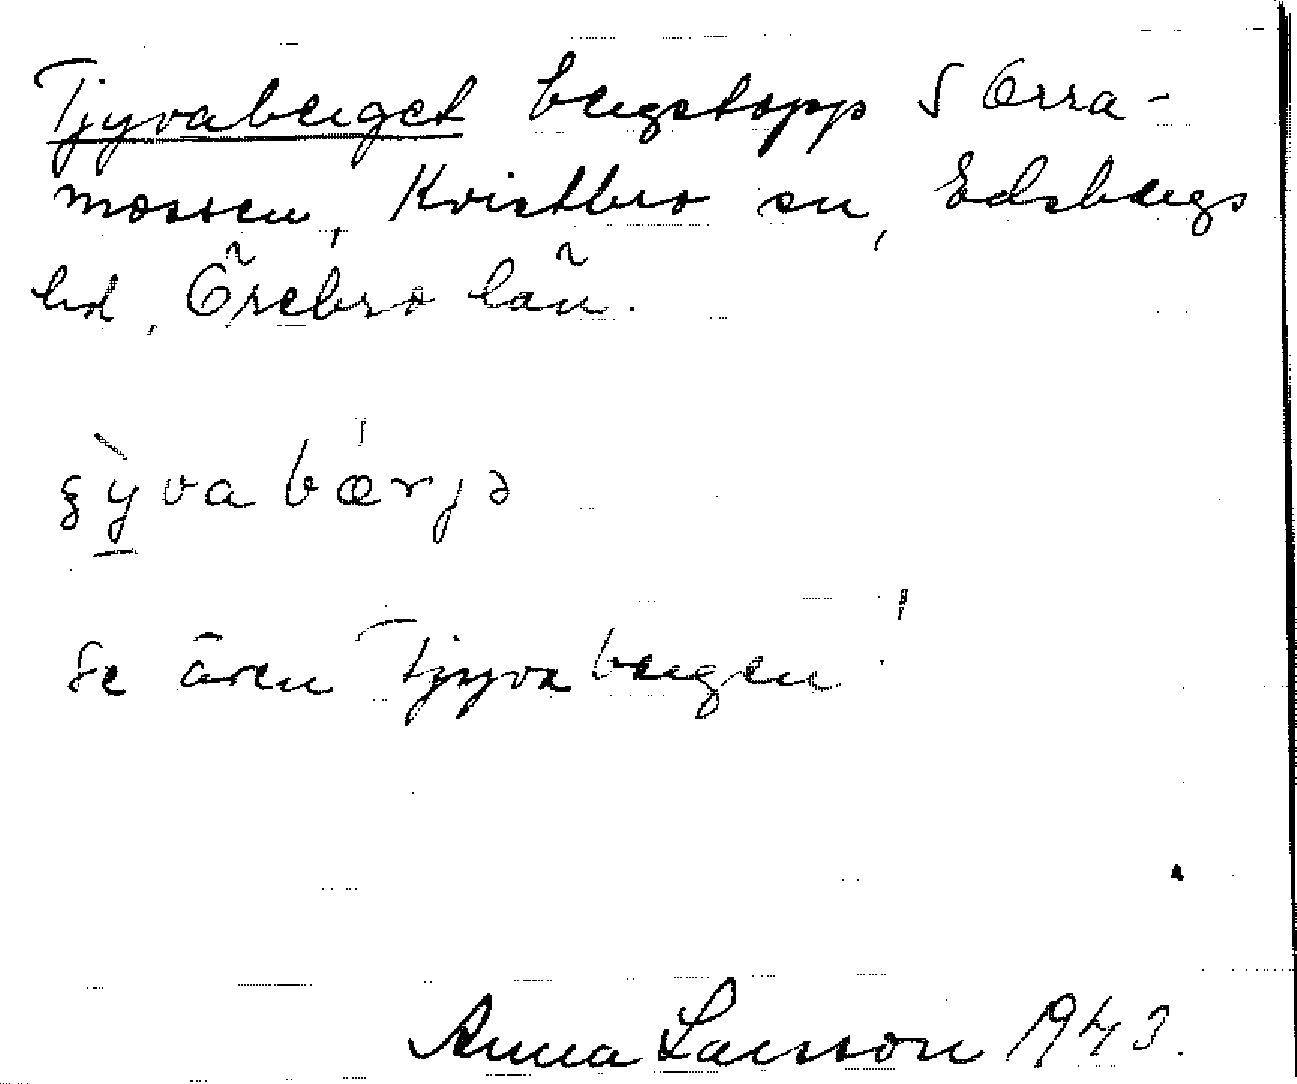 Tjyvaberget bergstopp S Orra-
mossen, Kvistbro sn, Edsbergs
hd, Örebro län.
ʂỳvabærjə
Se även Tjyvabergen!
Anna Larsson 1943.